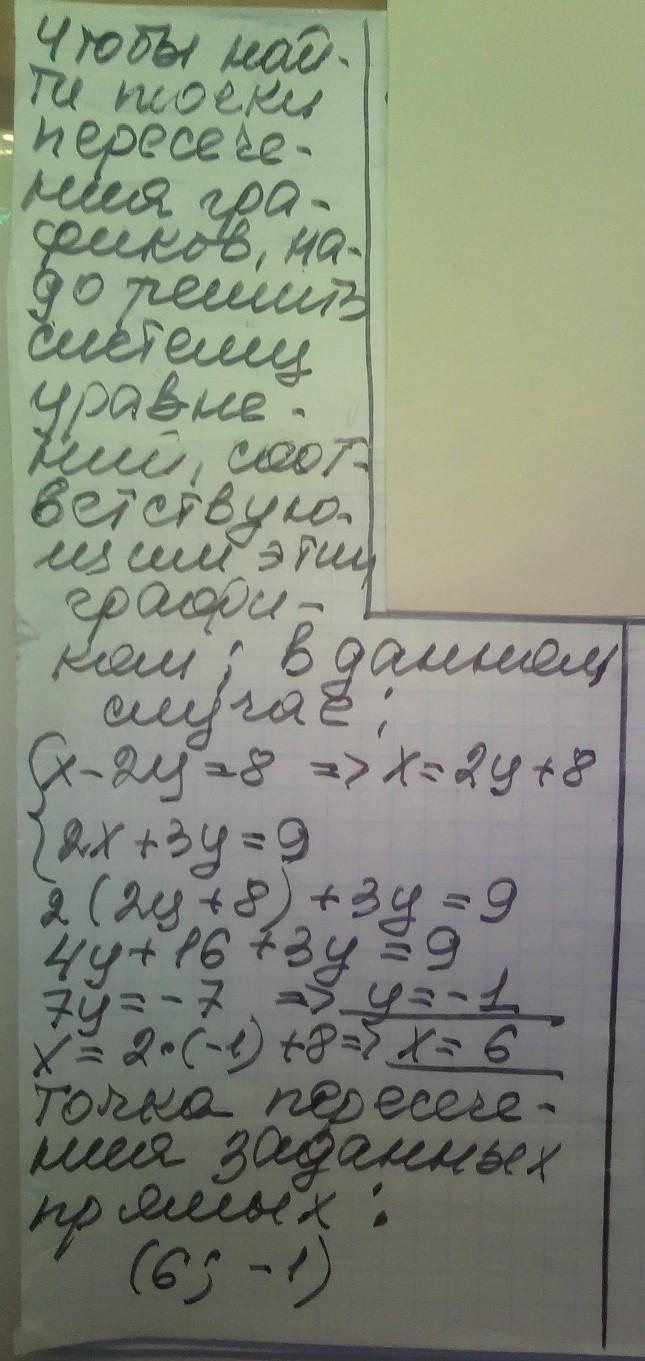 Чтобы най-
ти точки
пересече-
ния гра-
фиков, на-
до решить
систему
уравне-
ний, соот-
ветствую-
щим этим
графи-
кам; в данном
случае:
x - 2y = 8 => x = 2y + 8
2x + 3y = 9
2(2y + 8) + 3y = 9
4y + 16 + 3y = 9
7y = -7 => y = -1
x = 2·(-1) + 8 => x = 6
точка пересече-
ния заданных
прямых:
(6; -1)